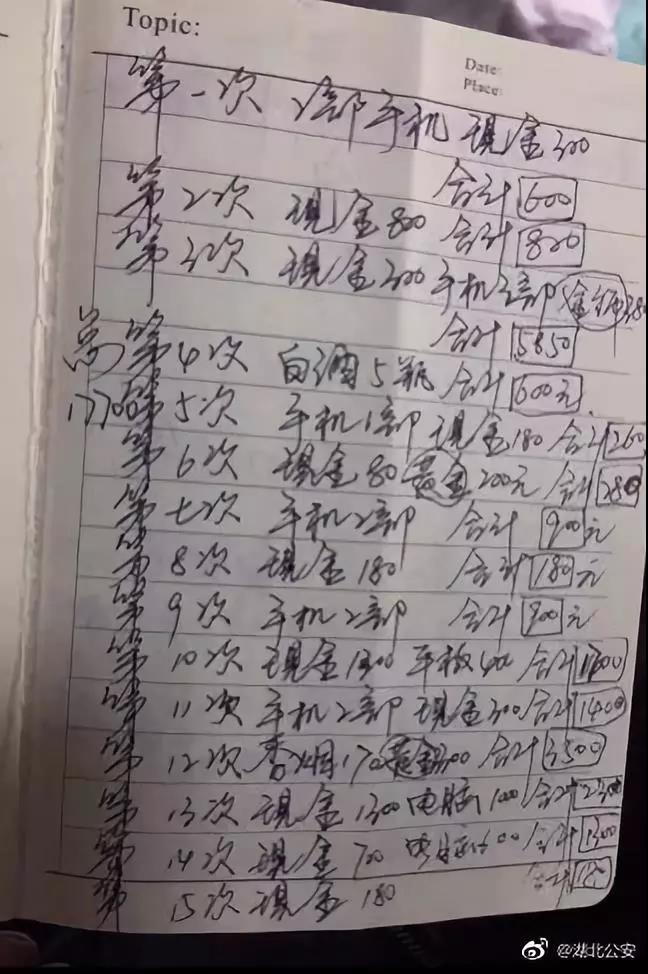 Topic:
Date:
Place:
第一次 1部手机 现金300
合计 600
第2次 现金800 合计 800
第3次 现金300 手机2部
合计 5850
第4次 白酒5瓶 合计 600元
总
17700
第5次 手机1部 现金180 合计 260
第6次 现金80 黄金200元 合计 280
第七次 手机2部 合计 900元
第8次 现金180 合计 180元
第9次 手机2部 合计 900元
第10次 现金1300 平板400 合计 1700
第11次 手机2部 现金500 合计 1400
第12次 香烟170 合计 3500
第13次 现金1300 电脑1000 合计 2300
第14次 现金700 电脑600 合计 1300
第15次 现金180 合计 180
@湖北公安